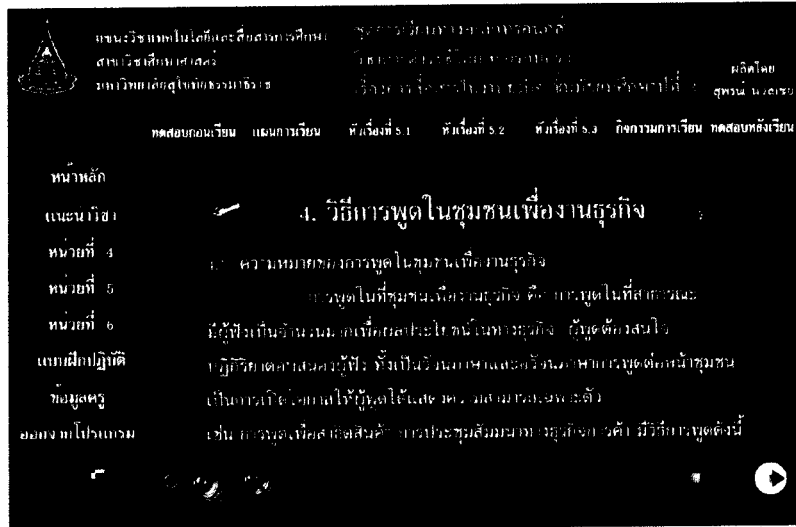 แขนงวิชาเทคโนโลยีและสื่อสารการศึกษา
สาขาวิชาศึกษาศาสตร์
มหาวิทยาลัยสุโขทัยธรรมาธิราช
ชุดการเรียนทางอิเล็กทรอนิกส์
ผลิตโดย
สุพรณี นวลเชย
ทดสอบก่อนเรียน แผนการเรียน หัวเรื่องที่ 5.1 หัวเรื่องที่ 5.2 หัวเรื่องที่ 5.3 กิจกรรมการเรียน ทดสอบหลังเรียน
หน้าหลัก
แนะนำวิชา
หน่วยที่ 4
หน่วยที่ 5
หน่วยที่ 6
แบบฝึกปฏิบัติ
ข้อมูลครู
ออกจากโปรแกรม
4. วิธีการพูดในชุมชนเพื่องานธุรกิจ
ความหมายของการพูดในชุมชนเพื่องานธุรกิจ
การพูดในที่ชุมชนเพื่องานธุรกิจ คือ การพูดในที่สาธารณะ
มีผู้ฟังเป็นจำนวนมากเพื่อผลประโยชน์ในทางธุรกิจ ผู้พูดต้องสนใจ
ปฏิกิริยาตอบสนองผู้ฟัง ทั้งเป็นวัจนภาษาและอวัจนภาษาการพูดต่อหน้าชุมชน
เป็นการเปิดโอกาสให้ผู้พูดได้แสดงความสามารถเฉพาะตัว
เช่น การพูดเพื่อสาธิตสินค้า การประชุมสัมมนาทางธุรกิจการค้า มีวิธีการพูดดังนี้